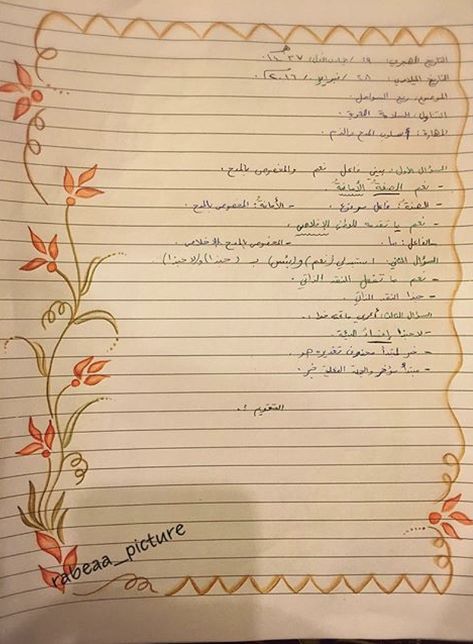 التاريخ الهجري: ١٩ / جمادى الأولى / ١٤٣٧ هـ
التاريخ الميلادي: ٢٨ / فبراير / ٢٠١٦ م
الموضوع: ربيع السواحل.
التناول: السلامة اللغوية
المهارة: أسلوب المدح والذم.
السؤال الأول: بيني فاعل نعم والمخصوص بالمدح.
- نعم الصفة الأمانة
- الصفة: فاعل مرفوع. - الأمانة: المخصوص بالمدح.
- نعم ما تقدمه للوطن الإخلاص
- الفاعل: ما. - المخصوص بالمدح الإخلاص
السؤال الثاني: استبدلي (نعم) و (بئس) بـ (حبذا) و (لا حبذا)
- نعم ما تفعل النقد الذاتي.
- حبذا النقد الذاتي.
السؤال الثالث: أعربي ما تحته خط:
- لا حبذا إفساد البيئة.
- خبر لمبتدأ محذوف تقديره هو.
- مبتدأ مؤخر والجملة الفعلية خبر.
التقويم:
rabeaa_picture